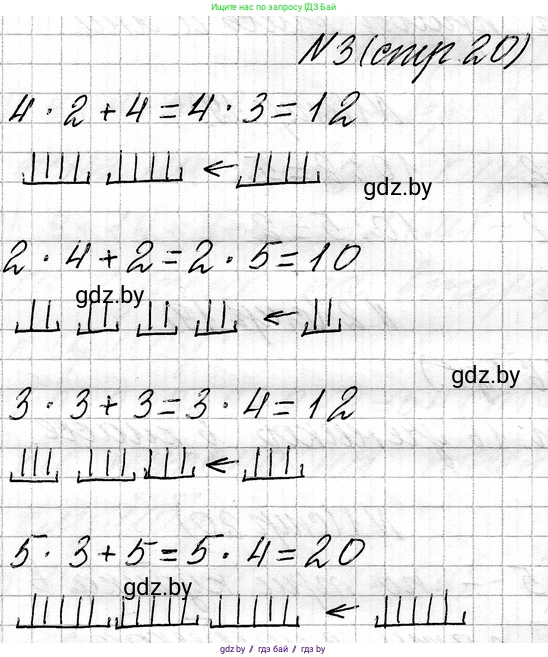 Ищите нас по запросу ГДЗ Бай
N 3 (стр 20)
4 · 2 + 4 = 4 · 3 = 12
gdz.by
2 · 4 + 2 = 2 · 5 = 10
gdz.by
gdz.by
3 · 3 + 3 = 3 · 4 = 12
5 · 3 + 5 = 5 · 4 = 20
gdz.by
gdz.by // гдз бай // гдз by